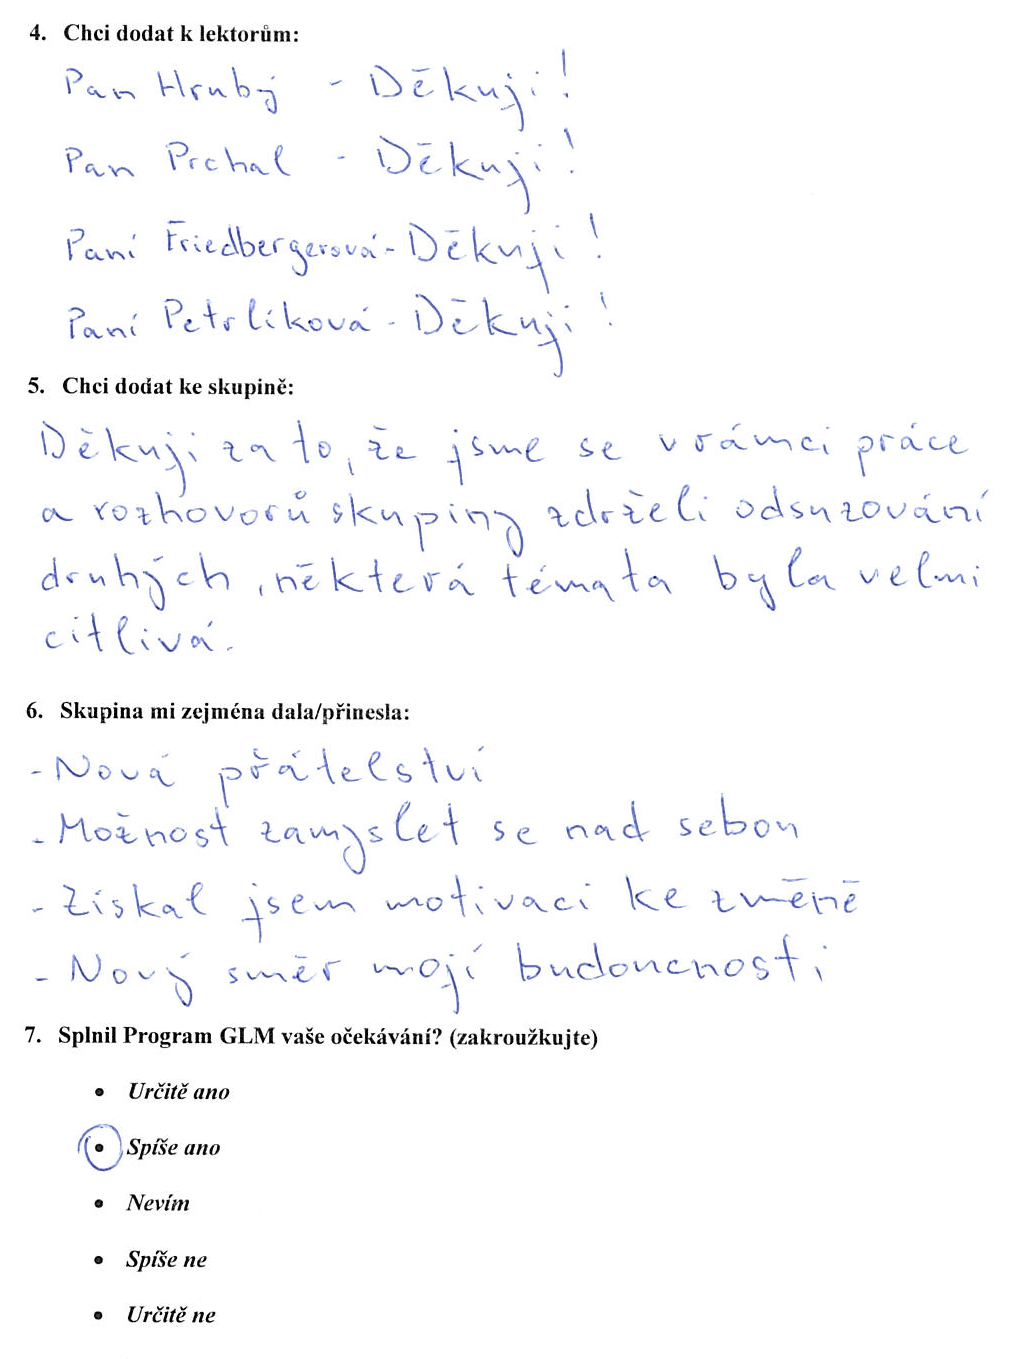 4. Chci dodat k lektorům:
Pan Hrubý - Děkuji!
Pan Prchal - Děkuji!
Paní Friedbergerová - Děkuji!
Paní Petrlíková - Děkuji!
5. Chci dodat ke skupině:
Děkuji za to, že jsme se v rámci práce
a rozhovorů skupiny zdrželi odsuzování
druhých, některá témata byla velmi
citlivá.
6. Skupina mi zejména dala/přinesla:
- Nová přátelství
- Možnost zamyslet se nad sebou
- Získal jsem motivaci ke změně
- Nový směr mojí budoucnosti
7. Splnil Program GLM vaše očekávání? (zakroužkujte)
• Určitě ano
• Spíše ano
• Nevím
• Spíše ne
• Určitě ne